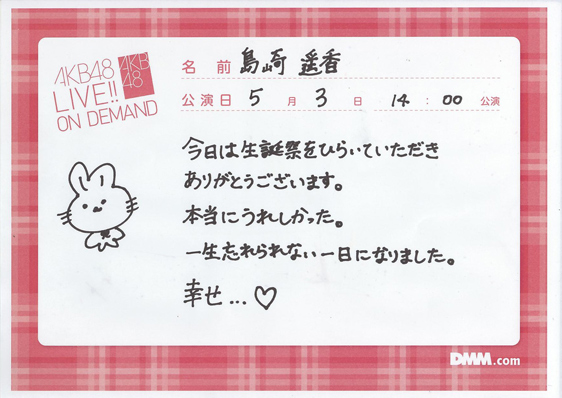 AKB48
LIVE!!
ON DEMAND
AKB
48
名前 島崎 遥香
公演日 5月3日 14:00 公演
今日は生誕祭をひらいていただき
ありがとうございます。
本当にうれしかった。
一生忘れられない一日になりました。
幸せ...♡
DMM.com